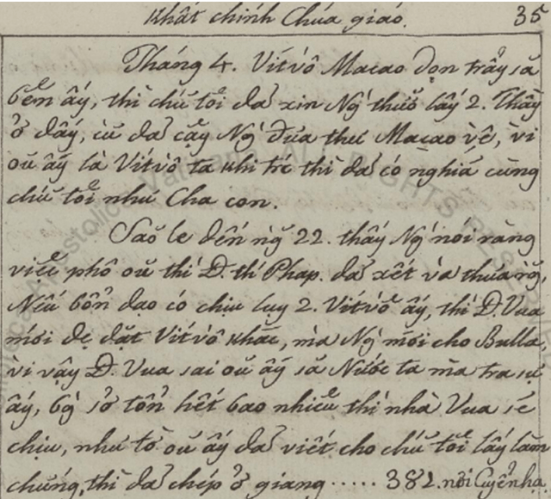 Nhất chính Chúa giáo. 35
Tháng 4. Vítvô Macao dọn trảy sã
bên ấy, thì chú᷃ tôi đã xin Ng᷄ thuở lấy 2. Thầy
ở đấy, cũ᷃ đã cậy Ng᷄ đưa thư Macao về, vì
oũ ấy là Vítvô ta khi trc thì đã có nghĩa cũng
chú᷃ tôi như Cha con.
Saõ le đến ng᷃ 22. thấy Ng᷄ nói rằng
việc phô oũ thì Đ. thí Phap. đã xét và thưa rg᷃,
Nếu bổn đạo có chịu luỵ 2. Vítvô ấy, thì Đ. Vua
mới để đặt Vítvô khác, mà Ng᷄ mới cho Bulla,
vì vậy Đ. Vua sai oũ ấy sã Nước ta mà tra sự
ấy, bg᷄ sở tổn hết bao nhiêu thì nhà Vua sẽ
chịu, như tờ oũ ấy đã viết cho chú᷃ tôi lấy làm
chứng, thì đã chép ở giang ..... 382. nơi Cuyển hạ